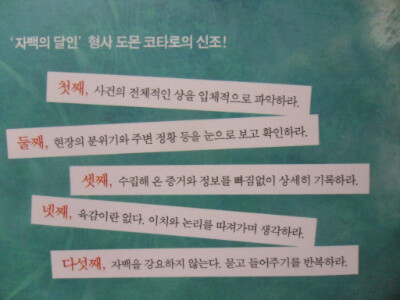 ‘자백의 달인’ 형사 도몬 코타로의 신조!
첫째, 사건의 전체적인 상을 입체적으로 파악하라.
둘째, 현장의 분위기와 주변 정황 등을 눈으로 보고 확인하라.
셋째, 수집해 온 증거와 정보를 빠짐없이 상세히 기록하라.
넷째, 육감이란 없다. 이치와 논리를 따져가며 생각하라.
다섯째, 자백을 강요하지 않는다. 묻고 들어주기를 반복하라.